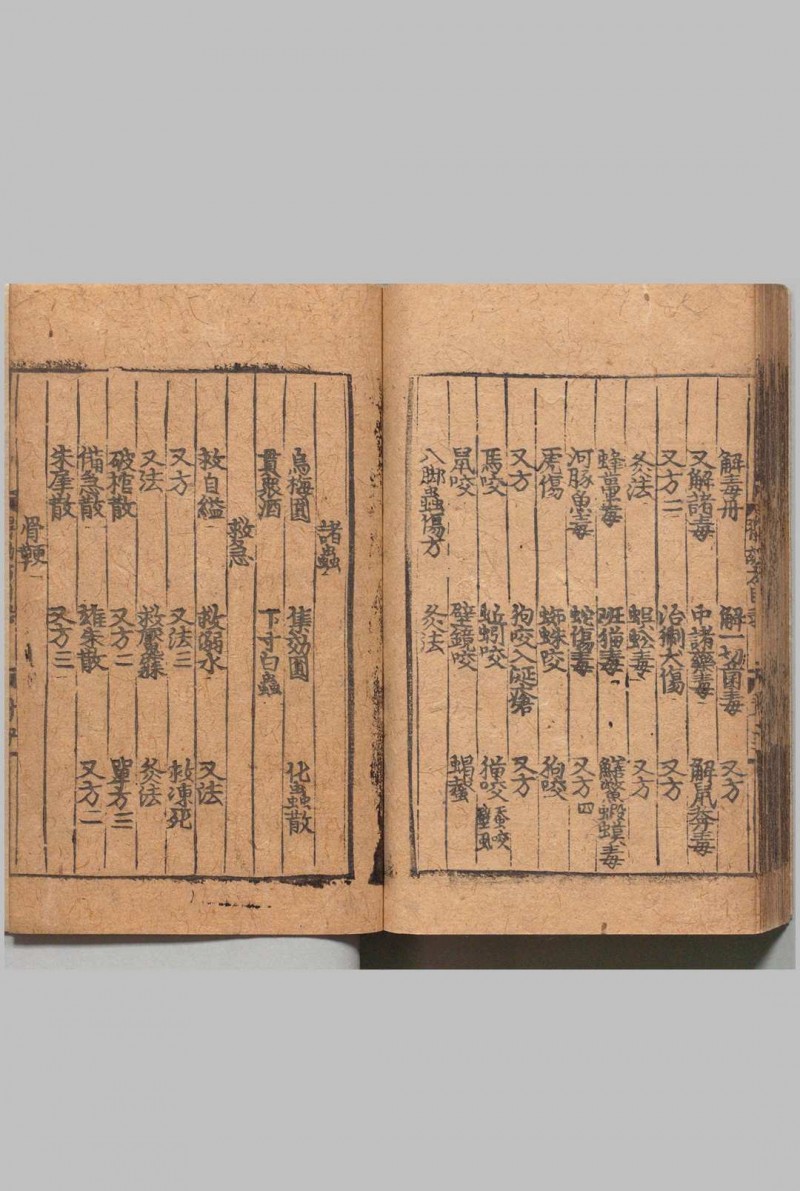 解毒丹 解一切菌毒 又方
又解諸毒 中諸藥毒 解鼠莽毒
又方二 治猘犬傷 又方
灸法 蜈蚣毒 又方
蜂蠆毒 斑猫毒 鱓鱉蝦蟆毒
河豚魚毒 蛇傷毒 又方四
虎傷 蜘蛛咬 狗咬
又方 狗咬入涎瘡 又方
馬咬 蚯蚓咬 猫咬 蚕咬
鼠咬 壁鏡咬 蝎螫
八脚蟲傷方 灸法
諸蟲
烏梅圓 集効圓 化蟲散
貫衆酒 下寸白蟲
救急
救自縊 救溺水 又法
又方 又法三 救凍死
又法 救魘寐 灸法
破棺散 又方二 單方三
備急散 雄朱散 又方二
朱犀散 又方三
骨鯁